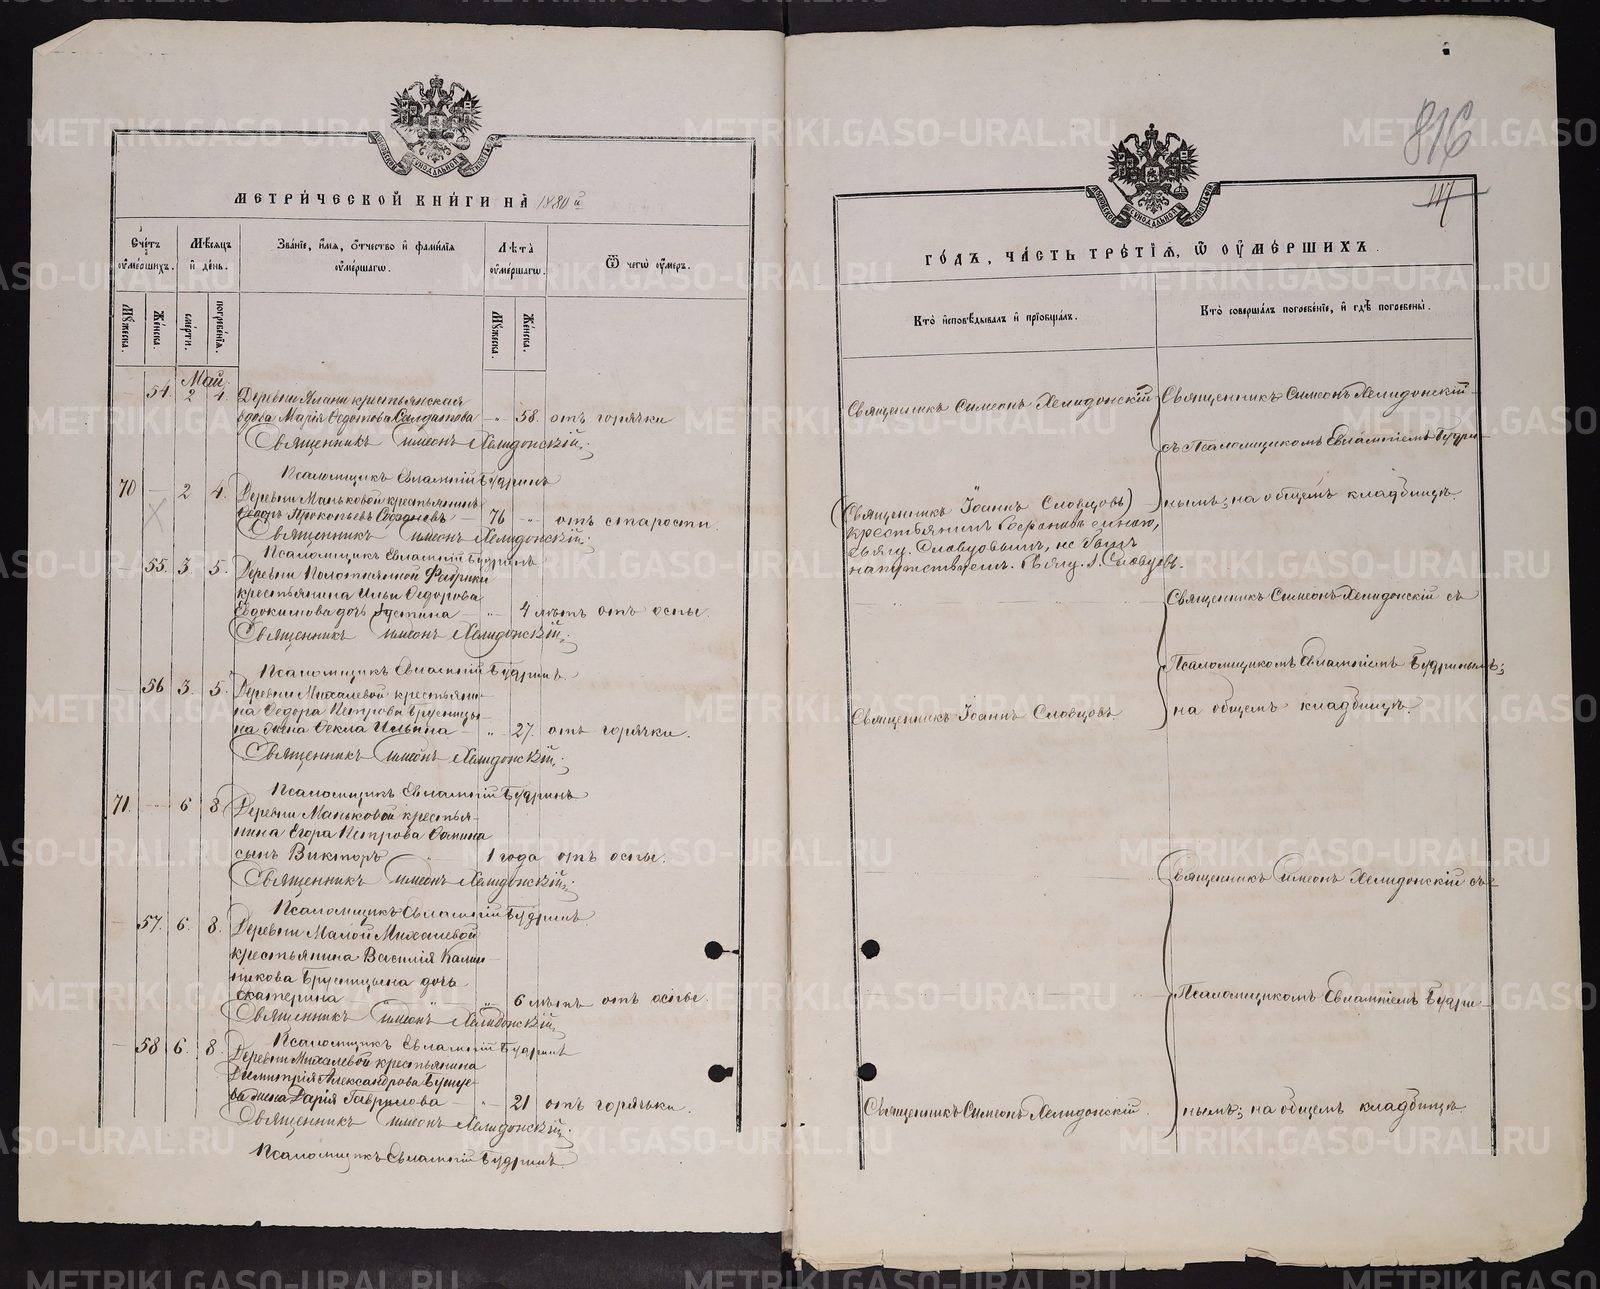 МЕТРИЧЕСКОЙ КНИГИ НА 1880 й
Счетъ оумершихъ.
Мѣсяцъ и день.
Званіе, имя, отчество и фамилія оумершагѡ.
Лѣта оумершагѡ.
Ѿ чегѡ оумеръ.
Мужеска.
Женска.
смерти.
погребенія.
Мужеска.
Женска.
Май.
54. 2 4. Деревни Ялани крестьянская
вдова Марія Ѳедотова Солдатова — „ — 58. отъ горячки
Священникъ Симеонъ Хелидонскій.
Псаломщикъ Евлампій Будринъ
70 — 2 4. Деревни Маньковой крестьянинъ
Ѳедоръ Прокопьевъ — 76 „ отъ старости.
Священникъ Симеонъ Хелидонскій.
Псаломщикъ Евлампій Будринъ
55. 3. 5. Деревни Полотнянной Фабрики
крестьянина Ильи Ѳедорова
Евдокимова дочь Устина — „ 4 лѣтъ отъ оспы.
Священникъ Симеонъ Хелидонскій.
Псаломщикъ Евлампій Будринъ
56 3. 5. Деревни Михалевой крестьяни-
на Ѳедора Петрова Брусницы-
на жена Ѳекла Ильина „ — 27. отъ горячки.
Священникъ Симеонъ Хелидонскій.
Псаломщикъ Евлампій Будринъ
71. — 6 8 Деревни Маньковой крестья-
нина Егора Петрова Ѳомина
сынъ Викторъ 1 года отъ оспы.
Священникъ Симеонъ Хелидонскій.
Псаломщикъ Евлампій Будринъ
57. 6. 8. Деревни Малой Михалевой
крестьянина Василія Калин-
никова Брусницына дочь
Екатерина „ — 6 лѣтъ отъ оспы.
Священникъ Симеонъ Хелидонскій.
Псаломщикъ Евлампій Будринъ
58 6. 8. Деревни Михалевой крестьянина
Димитрія Александрова
жена Дарія Гаврилова — „ — 21 отъ горячьки.
Священникъ Симеонъ Хелидонскій.
Псаломщикъ Евлампій Будринъ.
816
ГОДЪ, ЧАСТЬ ТРЕТІЯ, Ѿ ОУМЕРШИХЪ.
Кто исповѣдывалъ и пріобщалъ.
Кто совершалъ погребеніе, и гдѣ погребены.
Священникъ Симеонъ Хелидонскій
Священникъ Симеонъ Хелидонскій
съ Псаломщикомъ Евлампіемъ Будри-
нымъ; на общемъ кладбищѣ.
(Священникъ Іоаннъ Словцовъ)
не былъ
напутствуемъ. Свящ. І. Словцовъ.
Священникъ Симеонъ Хелидонскій съ
Псаломщикомъ Евлампіемъ Будринымъ;
на общемъ кладбищѣ.
Священникъ Іоаннъ Словцовъ
Священникъ Симеонъ Хелидонскій съ
Псаломщикомъ Евлампіемъ Будри-
нымъ; на общемъ кладбищѣ.
Священникъ Симеонъ Хелидонскій
METRIKI.GASO-URAL.RU